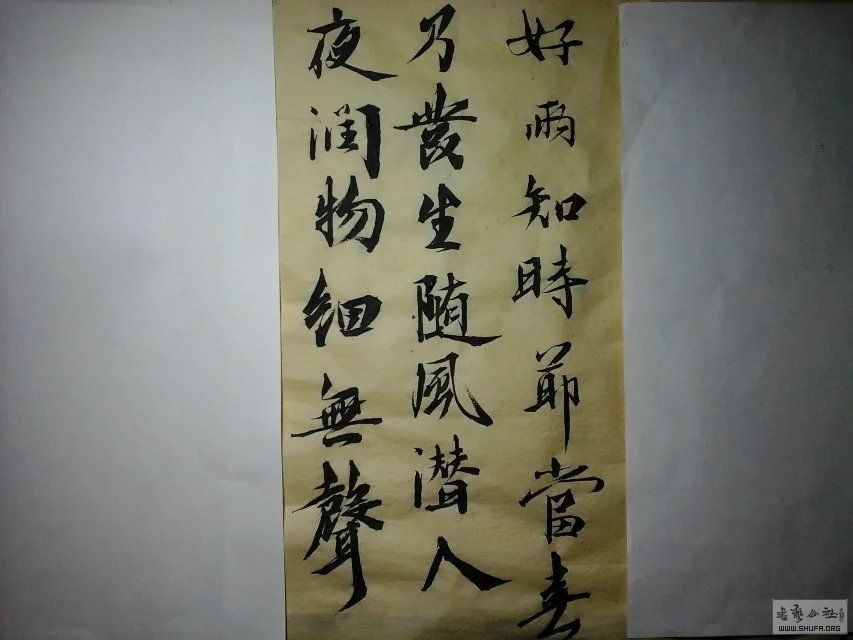 好雨知時節當春
乃發生随風潜入
夜润物细無聲
书艺公社
WWW.SHUFA.ORG